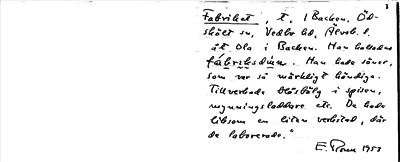 Fabriket, t. i Backen, Öd-
skölt sn, Vedbo hd, Älvsb. l.
åt Ola i Backen. Han kallades
fabriksdún. Han hade söner,
som var så märkligt händiga.
Tillverkade blåsbälg i spisen,
mynningsladdare etc. De hade
liksom en liten verkstad, där
de laborerade."
E. 1953